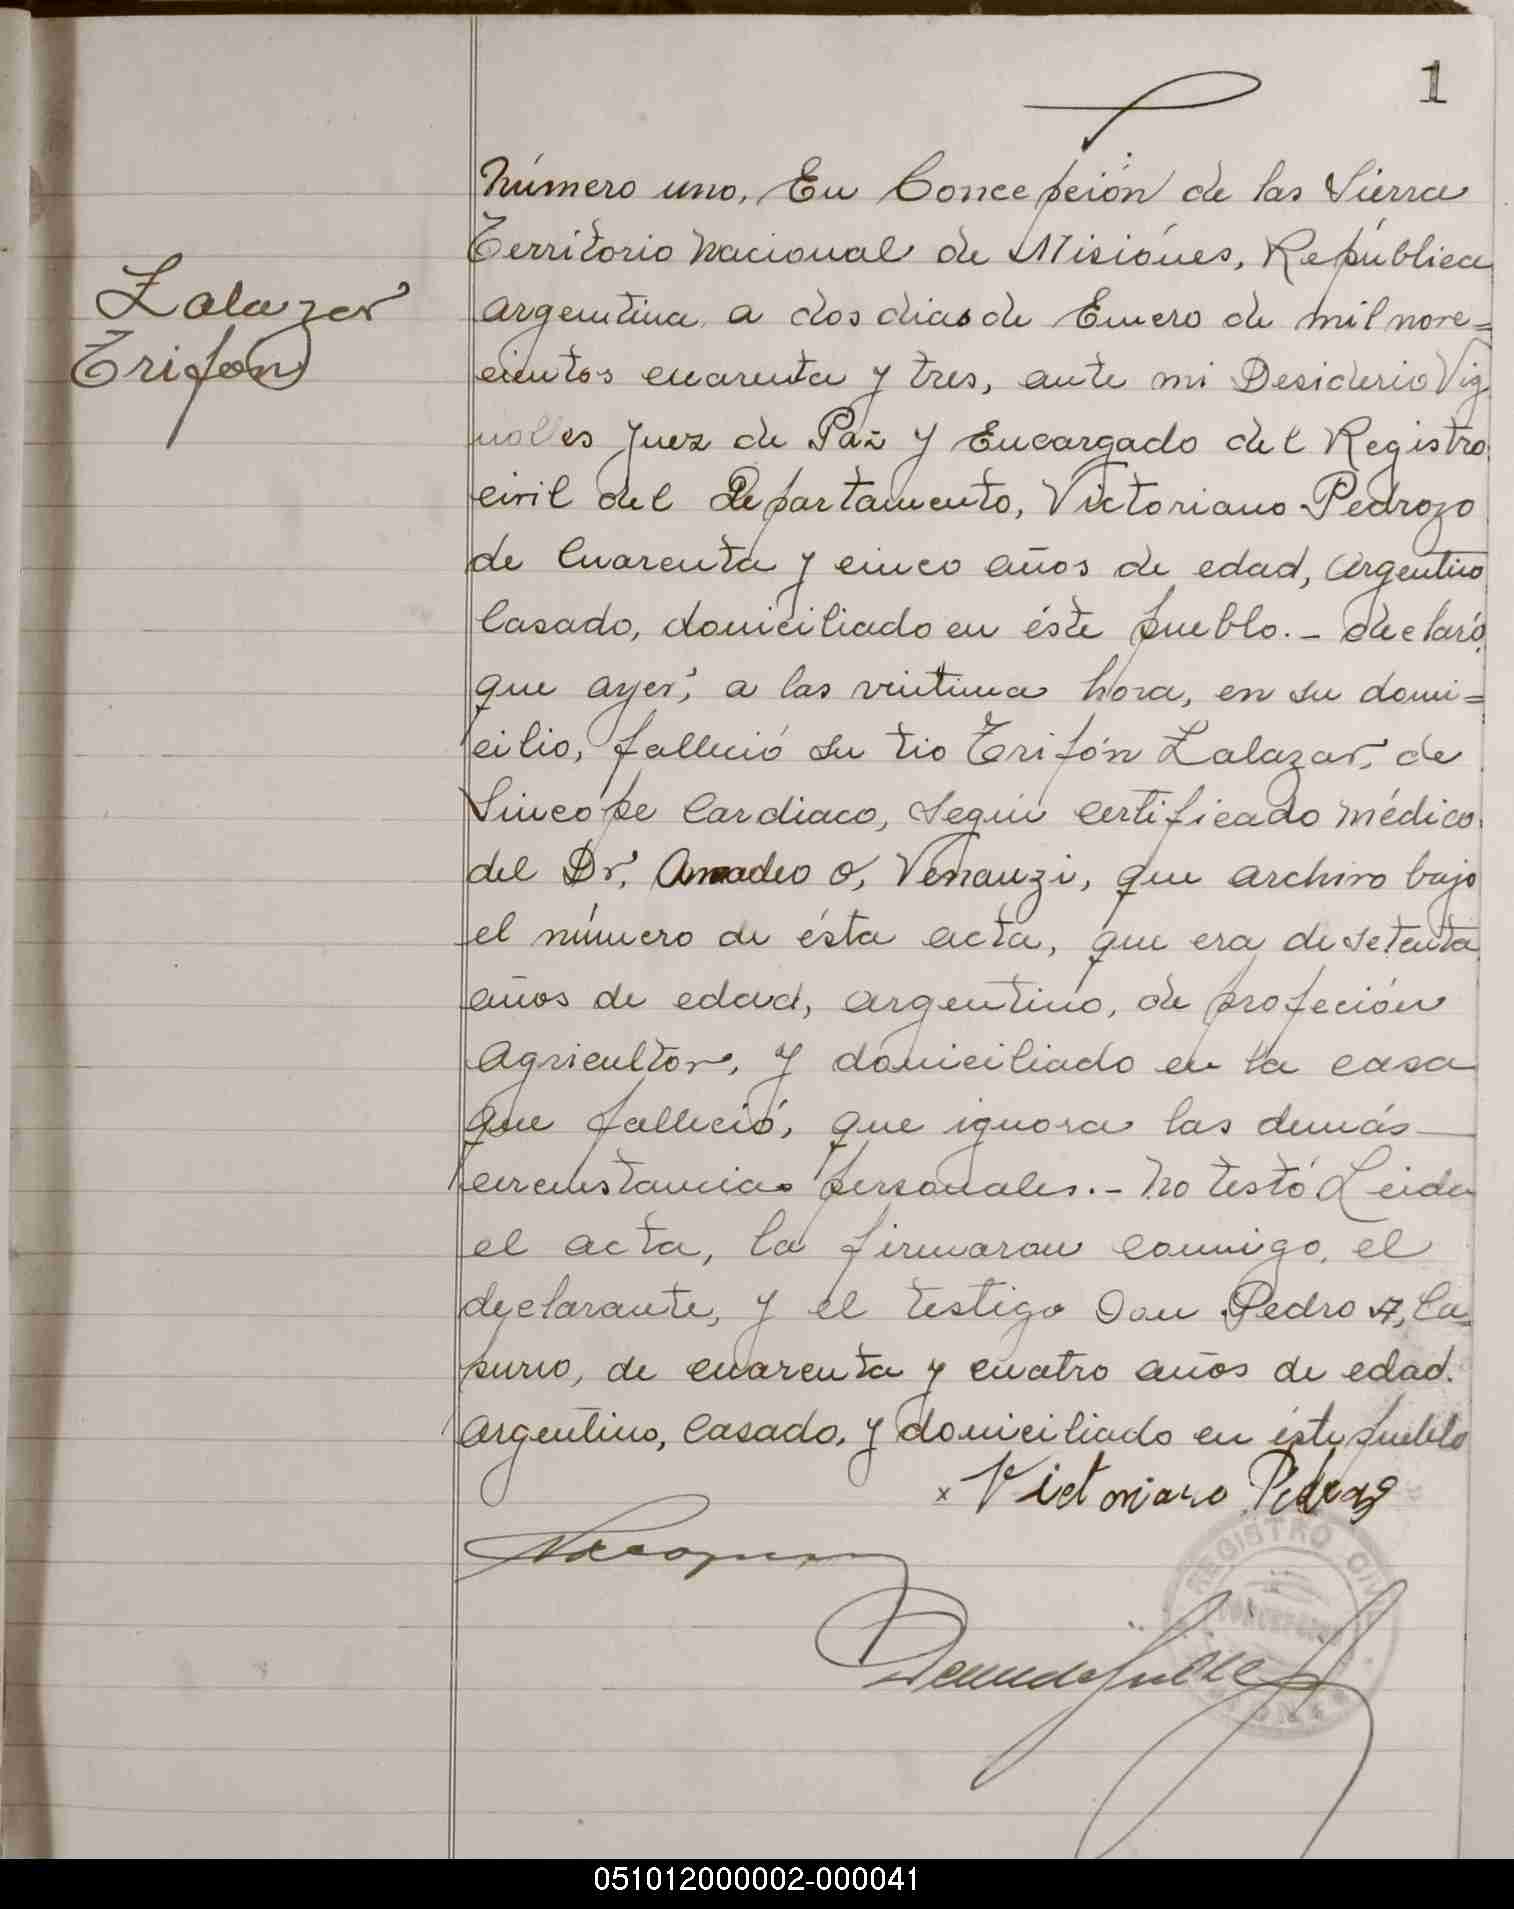 1
Número uno, En Concepción de las Sierra
Territorio Nacional de Misiónes, República
Zalazar
Argentina, a dos dias de Enero de mil nove=
Trifon
cientos cuarenta y tres, ante mi Desiderio Vig
nolles Juez de Paz y Encargado del Registro
civil del Departamento, Victoriano Pedrozo
de Cuarenta y cinco años de edad, Argentino
Casado, domiciliado en éste pueblo.- declaró
que ayer, a las vintiuna hora, en su domi=
cilio, falleció su tio Trifón Zalazar, de
Sincope Cardiaco, Según certificado médico
del Dr. Amadeo O, Venanzi, que archivo bajo
el número de ésta acta, que era de setenta
años de edad, argentino, de profeción
Agricultor, y domiciliado en la casa
que falleció, que ignora las demás
circunstancias personales.- No testó Leida
el acta, la firmaron conmigo, el
declarante, y el testigo Don Pedro A, Ca
purro, de cuarenta y cuatro años de edad.
Argentino, Casado, y domiciliado en éste pueblo
x Victoriano Pedrozo
REGISTRO CIVIL
051012000002-000041